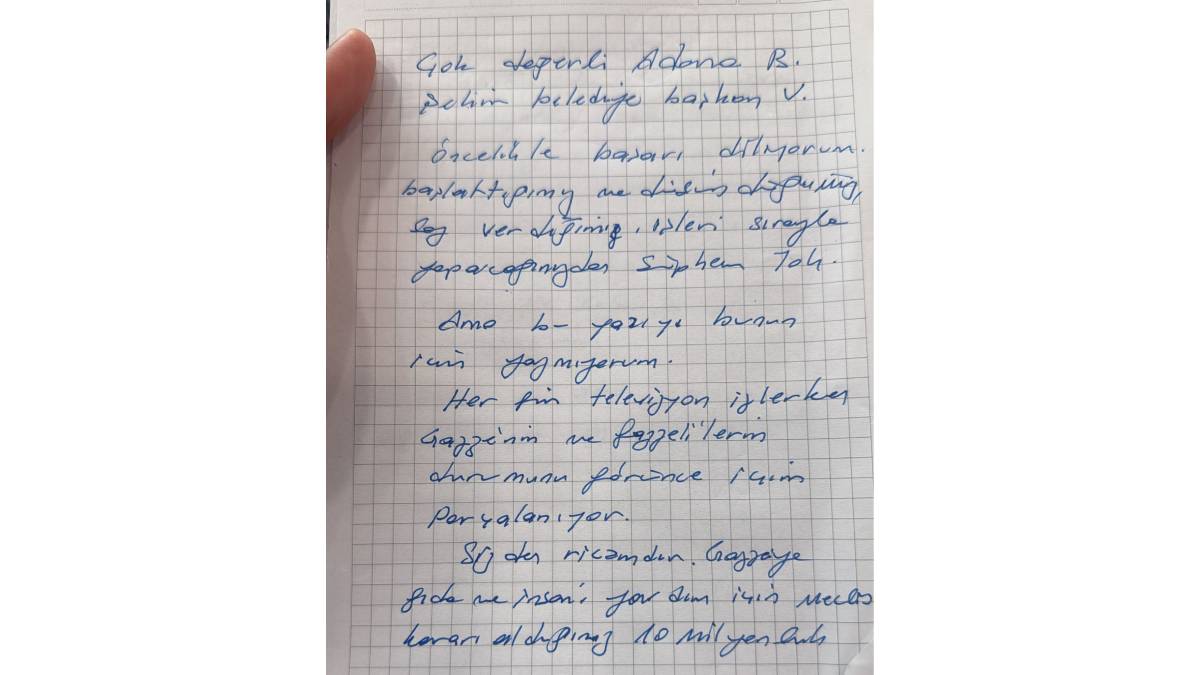 Çok değerli Adana B.
Şehir belediye başkan V.
öncelikle başarı diliyorum.
başlattığınız ve
söz verdiğiniz, işleri sırayla
yapacağınızdan şüphem yok.
Ama bu yazıyı bunun
için yazmıyorum.
Her gün televizyon izlerken
Gazze'nin ve gazzeli'lerin
durumunu görünce içim
Parçalanıyor.
Sizden ricamdır. Gazzeye
gıda ve insani yardım için Meclis
kararı aldığımız 10 milyonluk